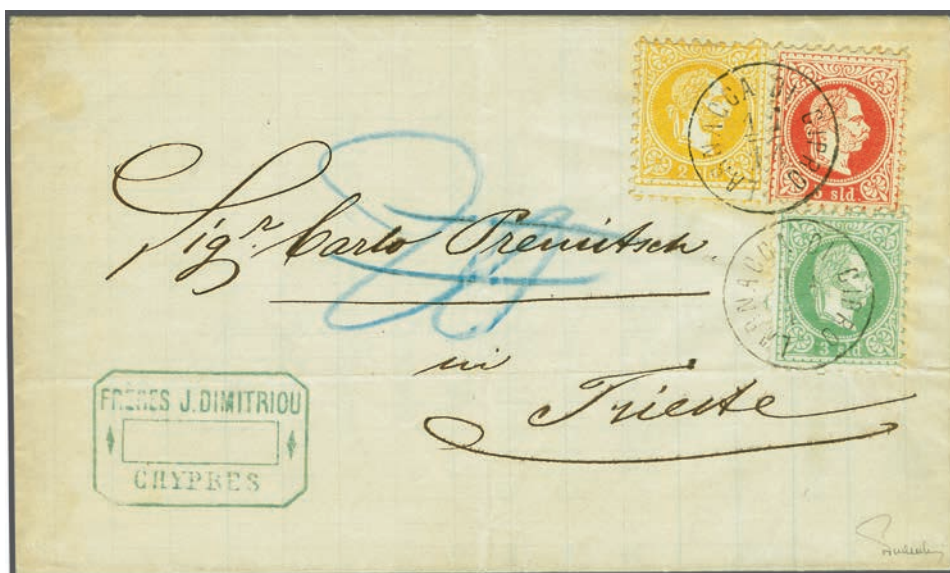 LARNACCA DI CIPRO
2
5 sld.
LARNACCA DI CIPRO
3 sld
Sigr. Carlo Premitsch.
in
Trieste
FRÈRES J. DIMITRIOU
CHYPRES